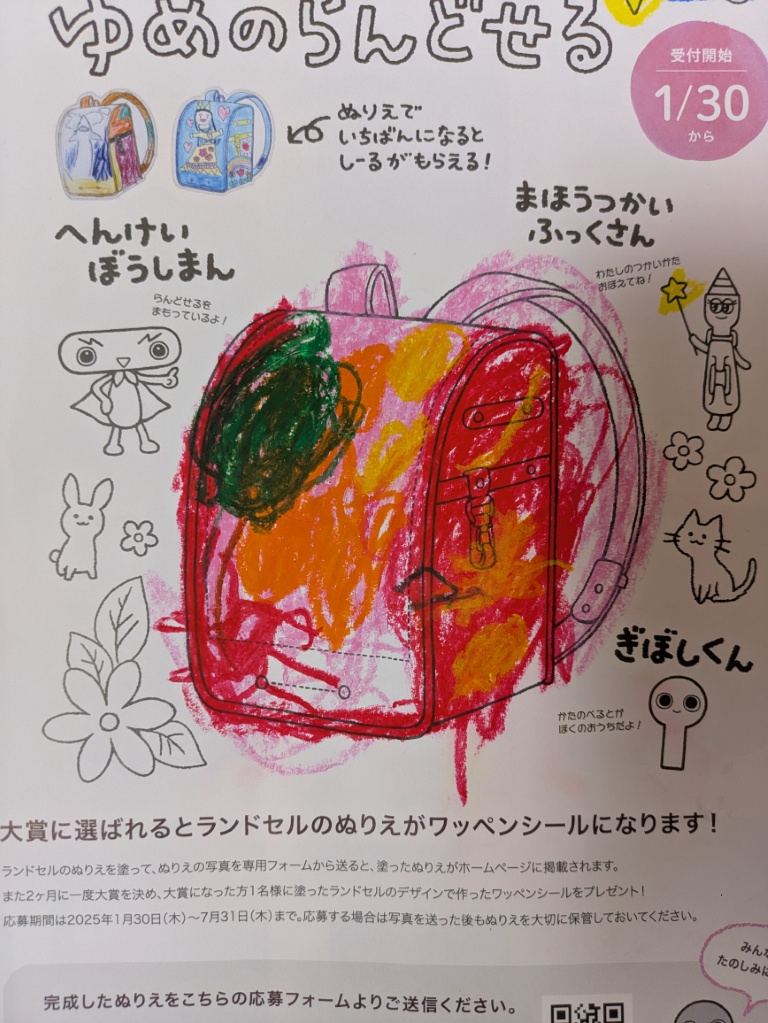 ゆめのらんどせる
受付開始
1/30
から
ぬりえで
いちばんになると
しーるがもらえる!
へんけい
ぼうしまん
らんどせるを
まもっているよ!
まほうつかい
ふっくさん
わたしのつかいかた
おぼえてね!
ぎぼしくん
かたのべるとが
ぼくのおうちだよ!
大賞に選ばれるとランドセルのぬりえがワッペンシールになります!
ランドセルのぬりえを塗って、ぬりえの写真を専用フォームから送ると、塗ったぬりえがホームページに掲載されます。
また2ヶ月に一度大賞を決め、大賞になった方1名様に塗ったランドセルのデザインで作ったワッペンシールをプレゼント!
応募期間は2025年1月30日(木)～7月31日(木)まで。応募する場合は写真を送った後もぬりえを大切に保管しておいてください。
みんな
たのしみに
完成したぬりえをこちらの応募フォームよりご送信ください。